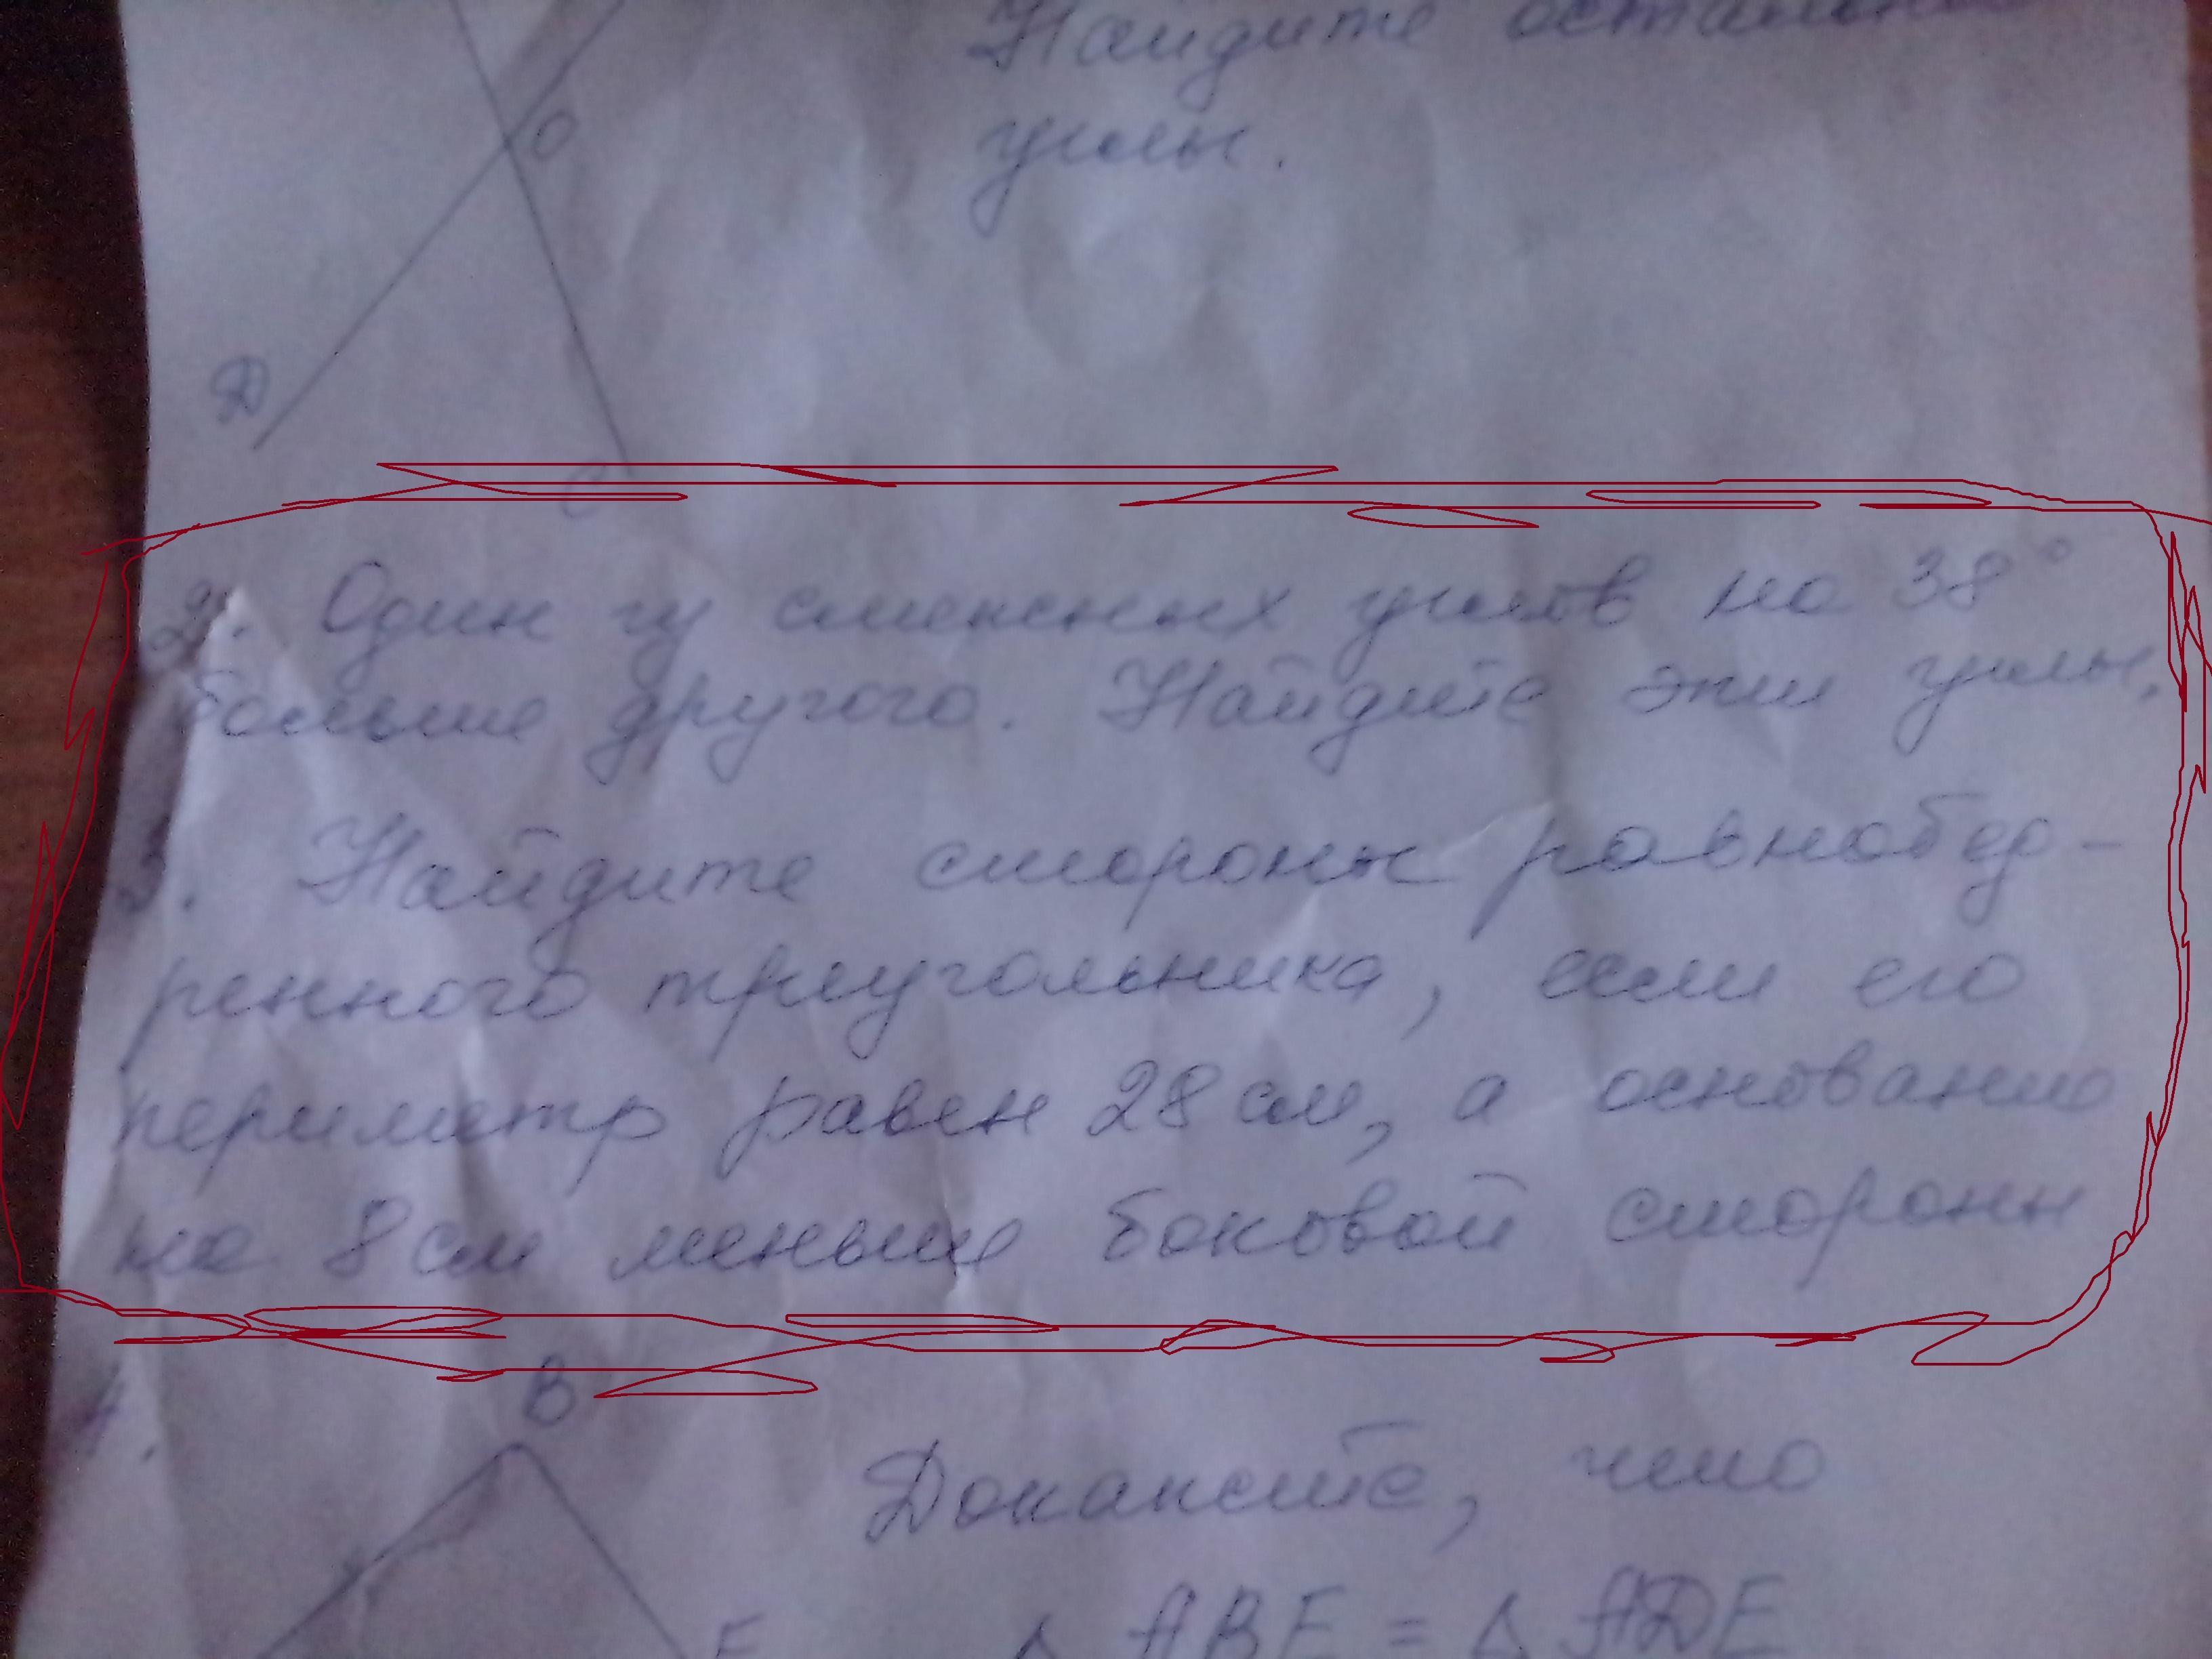 Найдите
углы.
О
Д
С
2. Один из смежных углов на 38°
больше другого. Найдите эти углы.
3. Найдите стороны равнобед-
ренного треугольника, если его
периметр равен 28 см, а основание
на 8 см меньше боковой стороны
4.
В
Докажите, что
Е
Δ АВЕ = Δ АДЕ